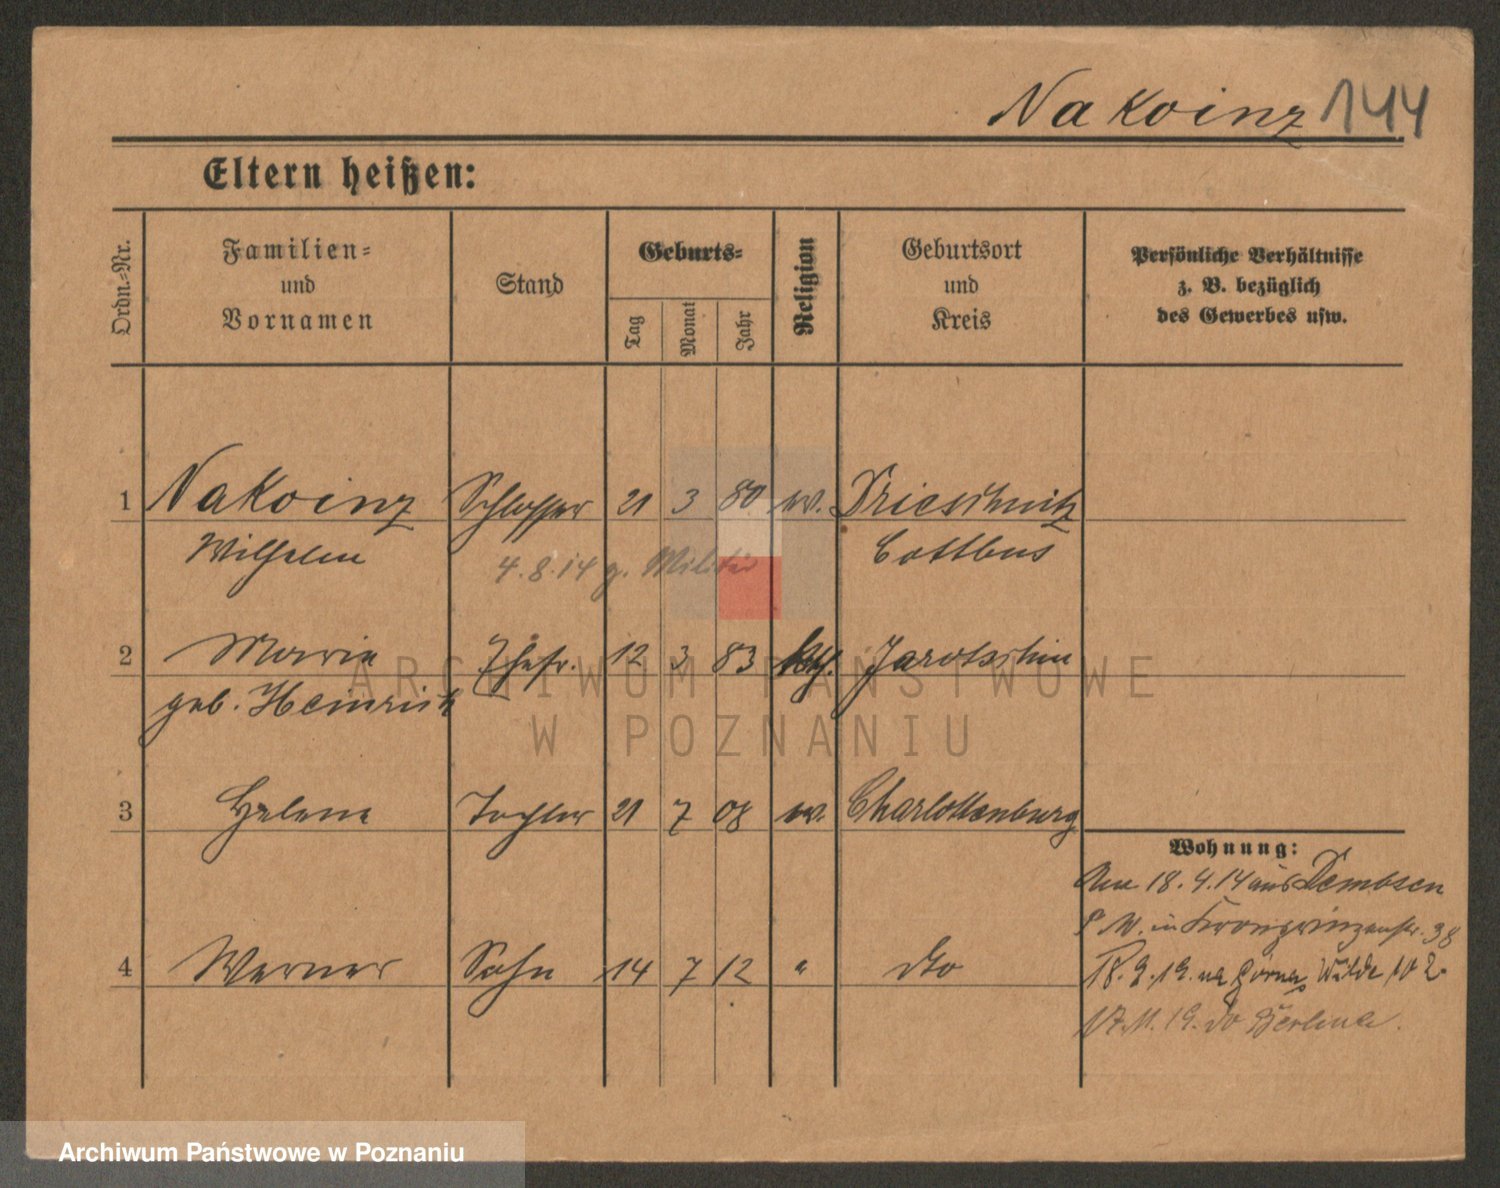 Nakoinz 144
Eltern heißen:
Ordn.-Nr.
Familien-
und
Vornamen
Stand
Geburts-
Tag
Monat
Jahr
Religion
Geburtsort
und
Kreis
Persönliche Verhältnisse
z. B. bezüglich
des Gewerbes usw.
1 Nakoinz Schlosser 21 3 80 ev. Drieschnitz
Wilhelm Cottbus
4.8.14 z. Militär
2 Marie Ehefr. 12 3 83 kth. Jarotschin
geb. Heinrich
3 Helene Tochter 21 7 08 ev. Charlottenburg
4 Werner Sohn 14 7 12 " dto
Wohnung:
Am 18.4.14 aus Dembsen
P. W. in Kronprinzenstr. 38
18.9.19. na Górna Wilda 102
17.11.19. do Berlina.
ARCHIWUM PAŃSTWOWE
W POZNANIU
Archiwum Państwowe w Poznaniu